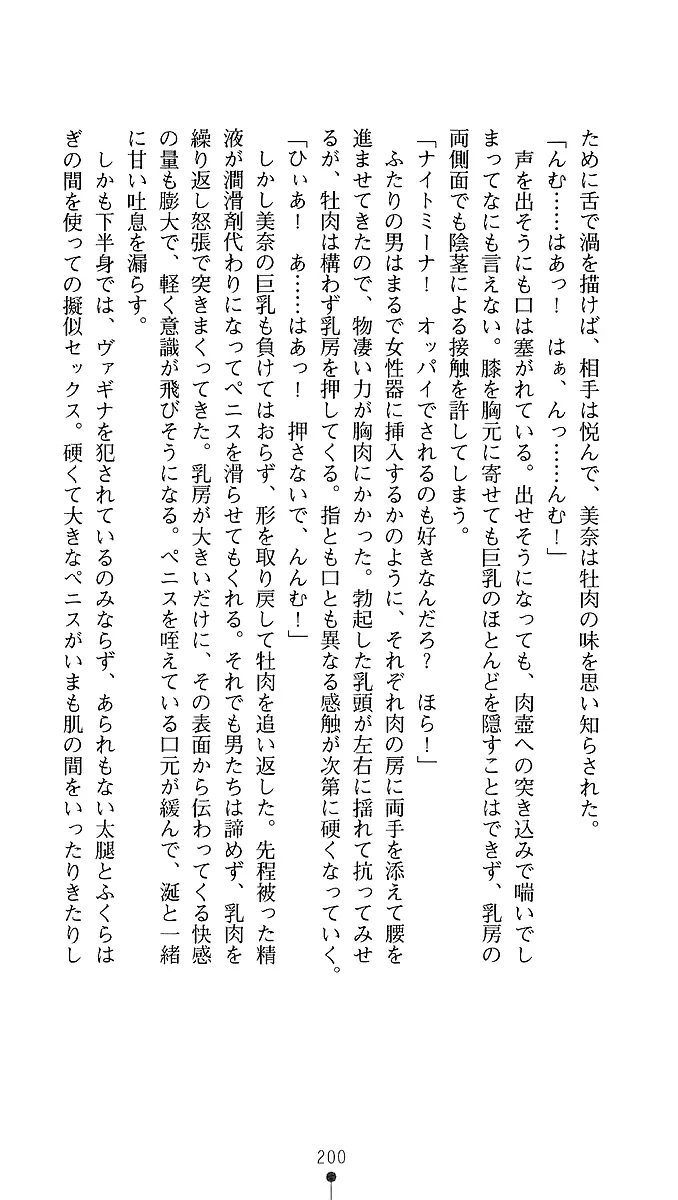 ために舌で渦を描けば、相手は悦んで、美奈は牡肉の味を思い知らされた。
「んむ……はあっ！　はぁ、んっ……んむ！」
　声を出そうにも口は塞がれている。出せそうになっても、肉壺への突き込みで喘いでし
まってなにも言えない。膝を胸元に寄せても巨乳のほとんどを隠すことはできず、乳房の
両側面でも陰茎による接触を許してしまう。
「ナイトミーナ！　オッパイでされるのも好きなんだろ？　ほら！」
　ふたりの男はまるで女性器に挿入するかのように、それぞれ肉の房に両手を添えて腰を
進ませてきたので、物凄い力が胸肉にかかった。勃起した乳頭が左右に揺れて抗ってみせ
るが、牡肉は構わず乳房を押してくる。指とも口とも異なる感触が次第に硬くなっていく。
「ひぃあ！　あ……はあっ！　押さないで、んんむ！」
　しかし美奈の巨乳も負けてはおらず、形を取り戻して牡肉を追い返した。先程被った精
液が潤滑剤代わりになってペニスを滑らせてもくれる。それでも男たちは諦めず、乳肉を
繰り返し怒張で突きまくってきた。乳房が大きいだけに、その表面から伝わってくる快感
の量も膨大で、軽く意識が飛びそうになる。ペニスを咥えている口元が緩んで、涎と一緒
に甘い吐息を漏らす。
　しかも下半身では、ヴァギナを犯されているのみならず、あられもない太腿とふくらは
ぎの間を使っての擬似セックス。硬くて大きなペニスがいまも肌の間をいったりきたりし
200